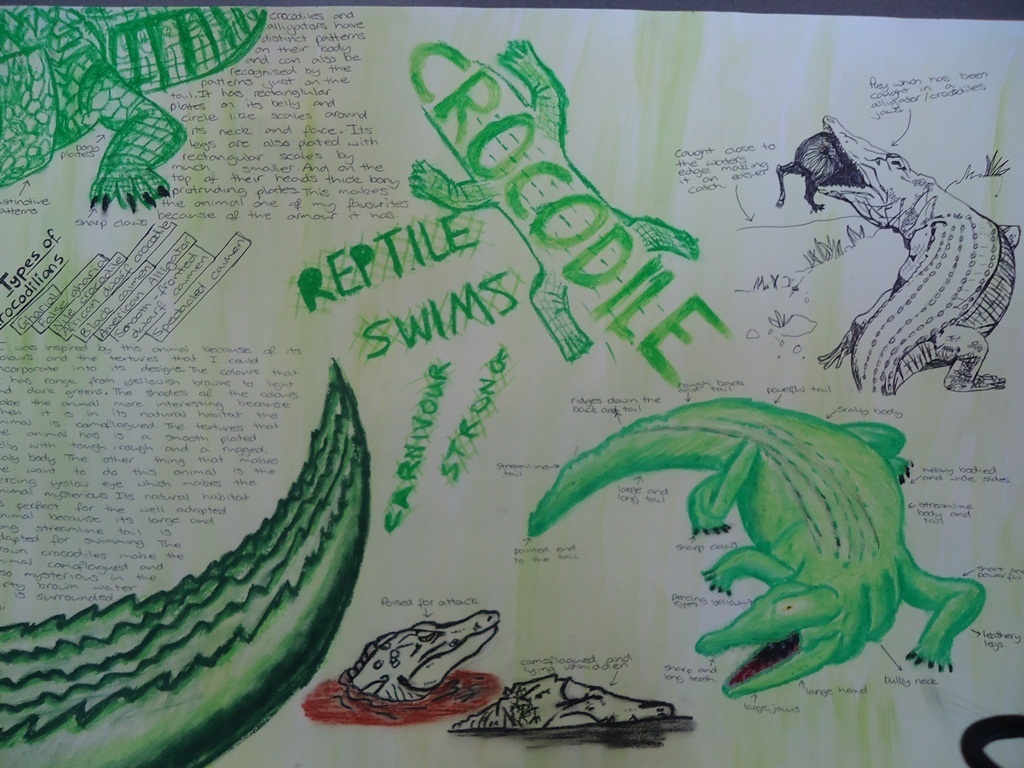 crocodiles and
alligators have
distinct patterns
on their body
and can also be
recognised by the
patterns just on the
tail. It has rectanglular
plates on its belly and
circle like scales around
its neck and face. Its
legs are also plated with
rectangular scales by
much smaller. And on the
top of their heads thick bony
protruding plates. This makes
the animal one of my favourites
because of the armour it has.
plates
sharp claws
CROCODILE
REPTILE
SWIMS
CARNIVOUR
STRONG
Prey when has been
caught in a
alligator/crocodiles
jaws
Caught close to
the waters
edge making
it an easier
catch.
Types of
Gharial
False gharial
Nile crocodile
African dwarf crocodile
Black caiman
American Alligator
Smooth-fronted
dwarf caiman
Spectacled caiman
I was inspired by the animal because of its
colours and the textures that I could
incorporate into its designs. The colours that
it has range from yellowish browns to light
and dark greens. The shades of the colours
make the animal more interesting because
when it is in its natural habitat the
animal is camoflagued. The textures that
the animal has is a smooth plated
belly with tough, rough and a rugged,
scaly body. The other thing that makes
me want to do this animal is the
piercing yellow eye which makes the
animal mysterious. Its natural habitat
is perfect for the well adapted
animal because its large and
long streamline tail is
adapted for swimming. The
brown crocodiles make the
animal camoflagued and
so mysterious in the
brown water
is surrounded
ridges down the
back and tail
powerful tail
scaly body
streamline
tail
large and
long tail
heavy bodied
and wide sides
streamline
body and
tail
pointed end
to the tail
sharp claws
short and
powerful
percing
eyes yellow
leathery
legs
sharp and
long teeth
bulky neck
large head
large jaws
Poised for attack
camoflagued and
lying